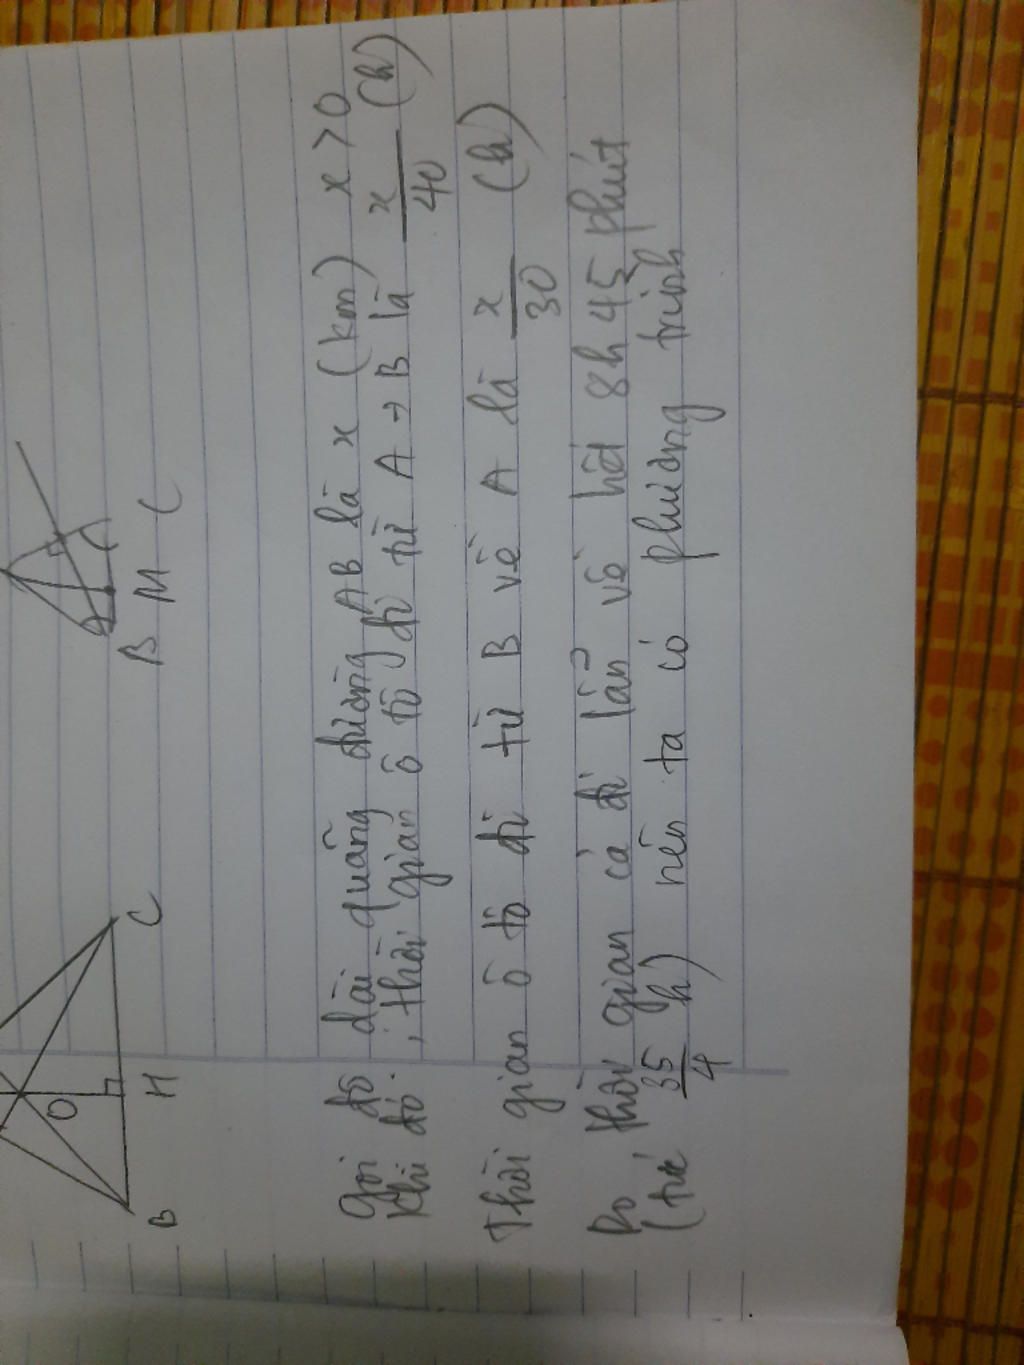 O
B H C
B M C
Gọi độ dài quãng đường AB là x (km) x > 0
Khi đó: , thời gian ô tô đi từ A → B là x/40 (h)
Thời gian ô tô đi từ B về A là x/30 (h)
Do thời gian cả đi lẫn về hết 8h 45 phút
(tức 35/4 h) nên ta có phương trình